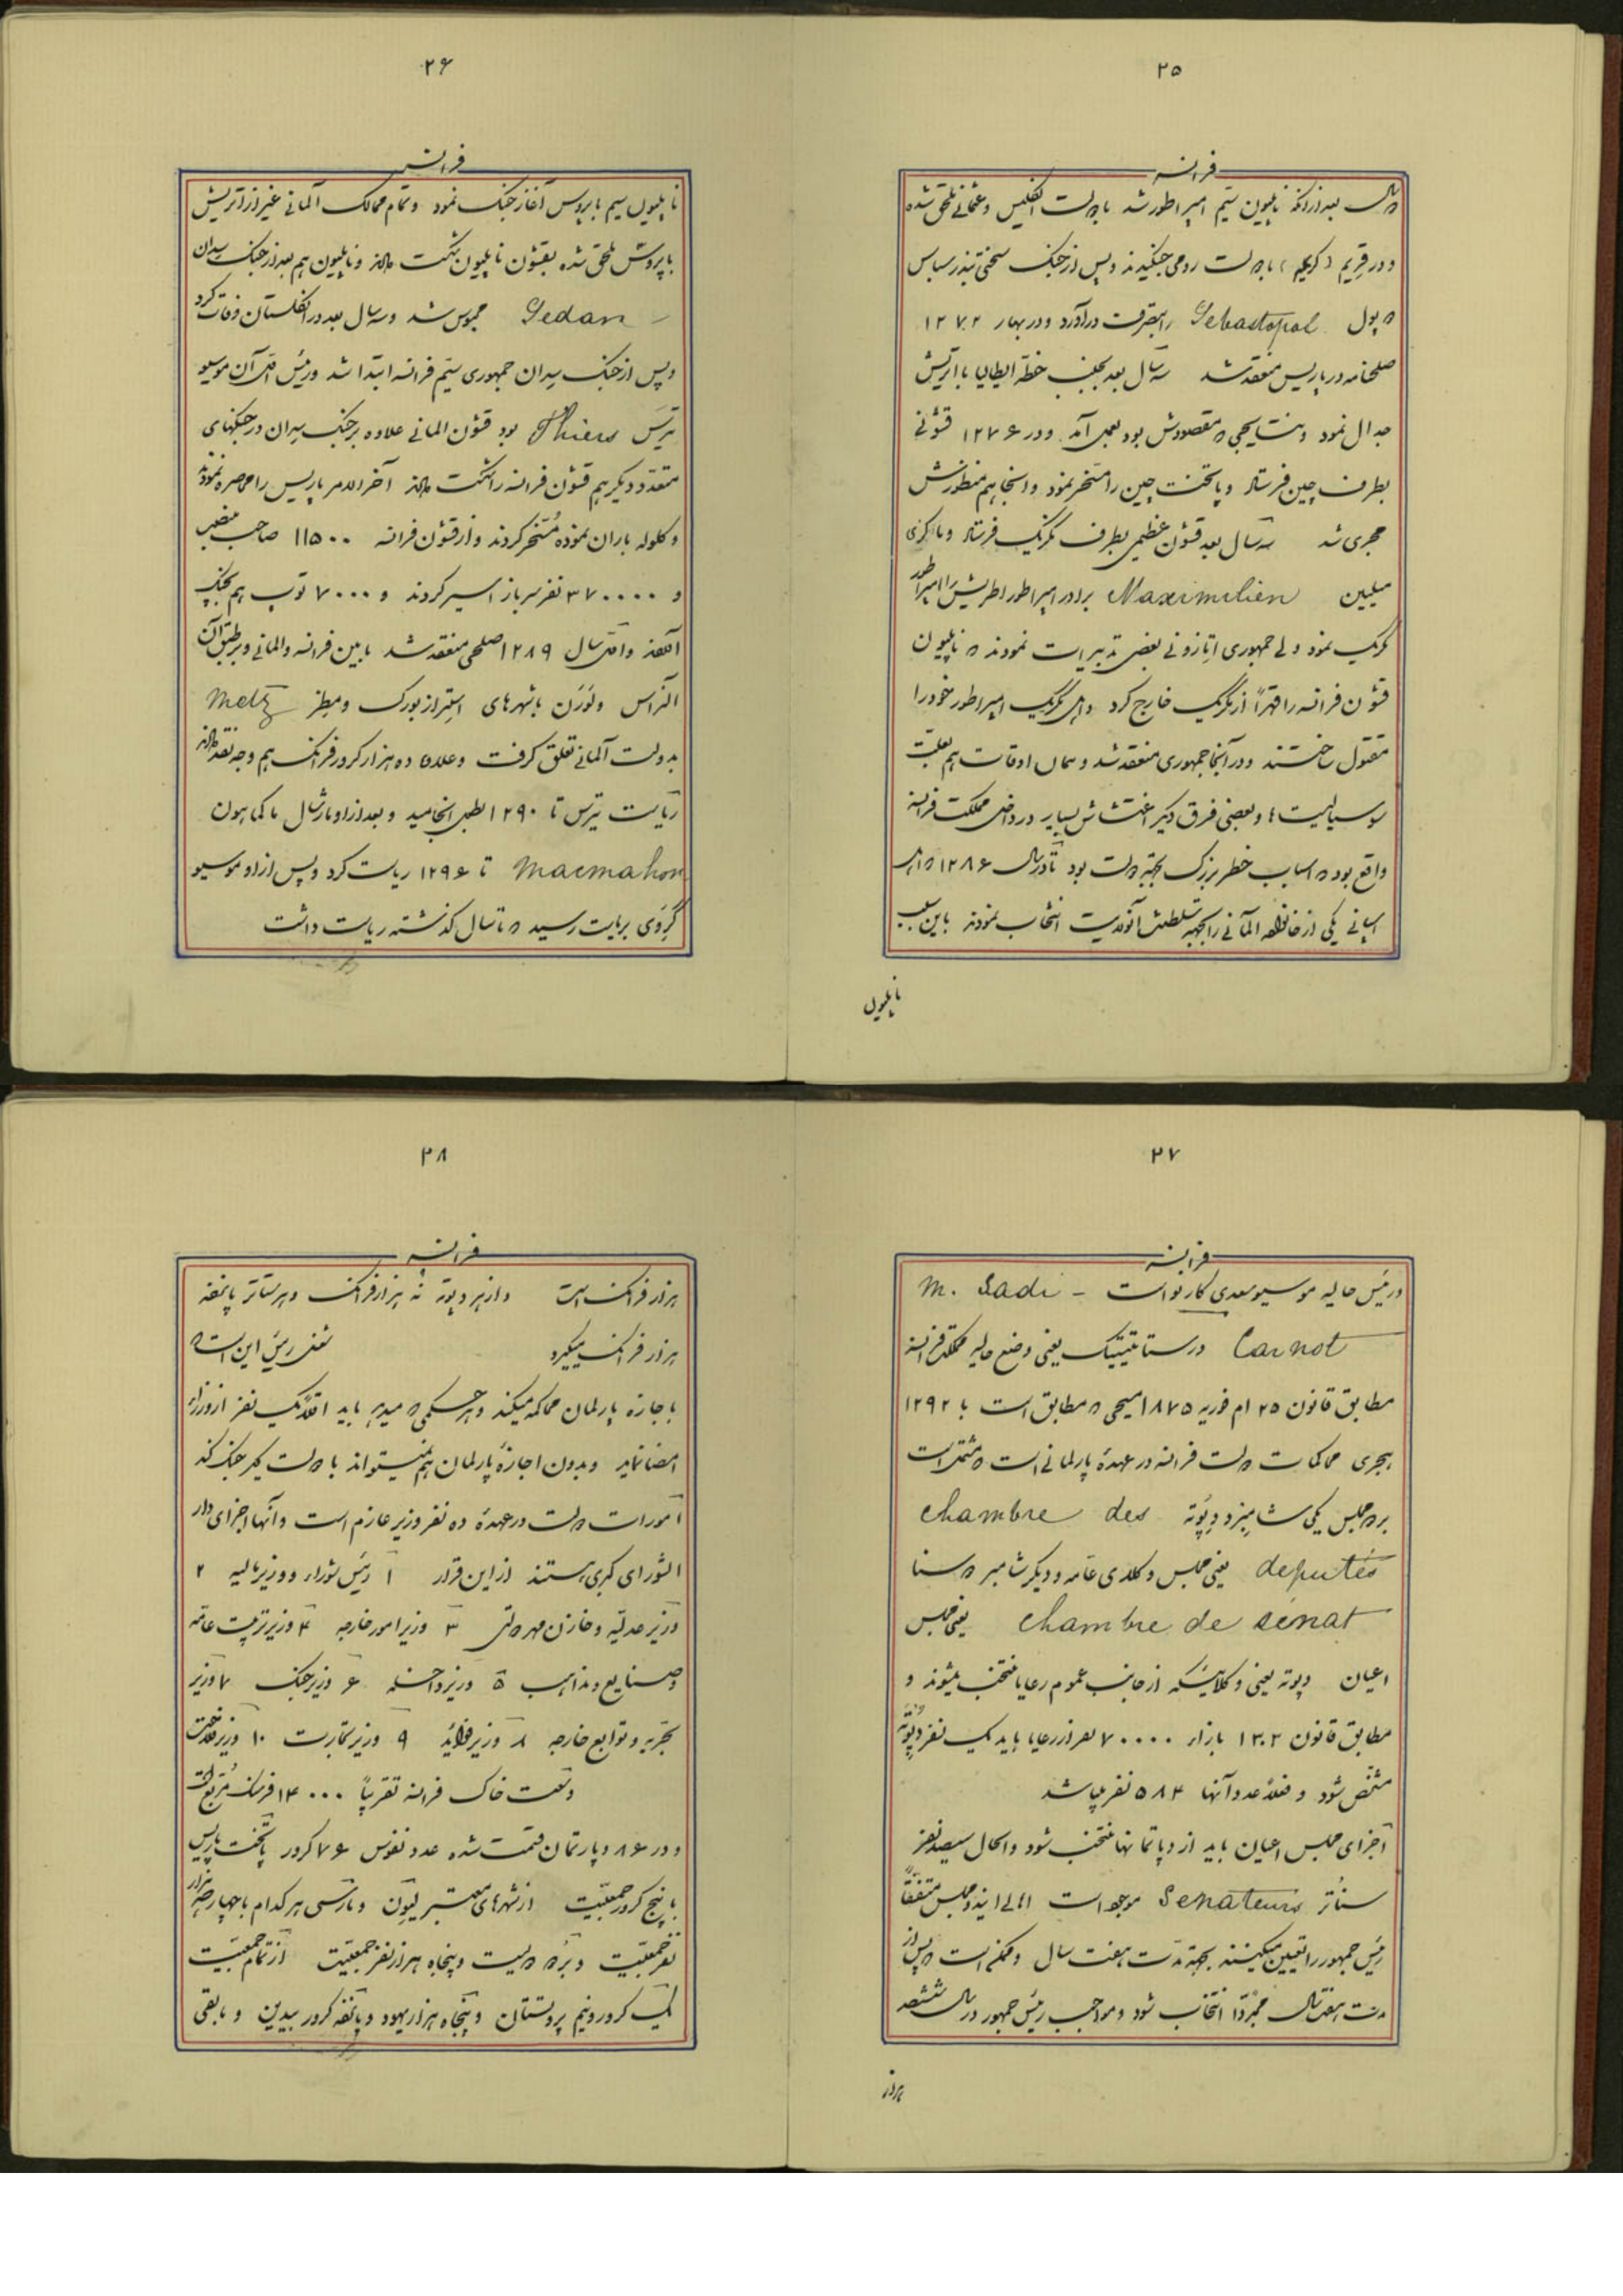 ۲۵
فرانسه
سال بعد از آنکه ناپلیون سیّم امپراطور شد با دولت انگلیس و عثمانی ملحق شده
و در قریم (کریمه) با دولت روسی جنگیدند و پس از جنگ سختی بندر سباس
دپول Sebastopol را بتصرف درآورد و در بهار ۱۲۷۲
صلحنامه در پاریس منعقد شد سه سال بعد بجنب خطه ایطالیا با اتریش
جدال نمود و نتایجی که مقصودش بود بعمل آمد و در ۱۲۷۶ قشونی
بطرف چین فرستاد و پایتخت چین را مسخر نمود و اینجا هم منظورش
مجری شد سه سال بعد قشون عظیمی بطرف مکزیک فرستاد و ماکزی
میلیین Maximilien برادر امپراطور اطریش را امپراطور
مکزیک نمود ولی جمهوری اتازونی بعضی تدبیرات نمودند که ناپلیون
قشون فرانسه را قهراً از مکزیک خارج کرد و اهل مکزیک امپراطور خود را
مقتول ساختند و در آنجا جمهوری منعقد شد و همان اوقات هم بعلت
سوسیالیست ها و بعضی فرق دیگر اغتشاش بسیار در داخل مملکت فرانسه
واقع بود که اسباب خطر بزرگ بجهة دولت بود تا در سال ۱۲۸۶ که اهل
اسپانی یکی از خانواده آلمانی را بجهة سلطنت آنولایت انتخاب نمودند باین سبب
ناپلیون
۲۶
فرانسه
ناپلیون سیم با پروس آغاز جنگ نمود و تمام ممالک آلمانی غیر از اتریش
با پروس ملحق شده بقشون ناپلیون شکست دادند و ناپلیون هم بعد از جنگ سدان
Sedan محبوس شد و سه سال بعد در انگلستان وفات کرد
و پس از جنگ سدان جمهوری سیّم فرانسه ابتدا شد و رئیس اول آن موسیو
تیرس Thiers بود قشون المانی علاوه بر جنگ سدان در جنگهای
متعدد دیگر هم قشون فرانسه را شکست دادند آخرالامر پاریس را محاصره نموده
و گلوله باران نموده مُسخر کردند و از قشون فرانسه ۱۱۵۰۰ صاحب منصب
و ۳۷۰۰۰۰ نفر سرباز اسیر کردند و ۷۰۰۰ توپ هم بچنگ
آنها و اول سال ۱۲۸۹ صلحی منعقد شد مابین فرانسه و المانی و بر طبق آن
الزاس و لورَن با شهرهای استرازبورک و مطز Metz
بدولت آلمانی تعلق گرفت و علاوه ده هزار کرور فرانک هم وجه نقد دادند
ریاست تیرس تا ۱۲۹۰ بطول انجامید و بعد از او مارشال ماکماهون
Macmahon تا ۱۲۹۶ ریاست کرد و پس از او موسیو
گروی بریاست رسید که تا سال گذشته ریاست داشت
۲۷
فرانسه
و رئیس حالیه موسیو سعدی کارنو است - M. Sadi
Carnot در ستاتیتیک یعنی وضع حالیه مملکت فرانسه
مطابق قانون ۲۵ ام فوریه ۱۸۷۵ مسیحی که مطابق است با ۱۲۹۲
هجری محاکمات دولت فرانسه در عهدهٔ پارلمانی است که مشتمل است
بر دو مجلس یکی شامبر دِ دپوته chambre des
deputés یعنی مجلس وکلای عامه و دیگر شامبر دُ سنا
chambre de senat یعنی مجلس
اعیان دپوته یعنی وکلائیکه از جانب عموم رعایا منتخب میشوند و
مطابق قانون ۱۳۰۲ بازاء ۷۰۰۰۰ نفر از رعایا باید یک نفر دپوته
مشخص شود و فعلاً عدد آنها ۵۸۴ نفر میباشد
اجزای مجلس اعیان باید از دپارتمانها منتخب شود و الحال سیصد نفر
سناتُر Senateurs موجود است اهالی این دو مجلس متفقاً
رئیس جمهور را تعیین میکنند بجهة مدت هفت سال و ممکن است که پس از
مدت هفت سال مجدّدا انتخاب شود و مواجب رئیس جمهور در سال ششصد
هزار
۲۸
فرانسه
هزار فرانک است و از هر دپوته نه هزار فرانک و هر سناتر پانزده
هزار فرانک میگیرد شغل رئیس این است که
با اجازه پارلمان محاکمه میکند و هر حکمی که میدهد باید اقلاً یک نفر از وزراء
امضا نماید و بدون اجازهٔ پارلمان هم نمیتواند با دولت دیگر جنگ کند
امورات دولت در عهدهٔ ده نفر وزیر عازم است و آنها اجزای دار
الشورای کبری هستند از این قرار ۱ رئیس وزراء و وزیر مالیه ۲
وزیر عدلیّه و خازن مهر دولتی ۳ وزیر امور خارجه ۴ وزیر تربیت عامه
و صنایع و مذاهب ۵ وزیر داخله ۶ وزیر جنگ ۷ وزیر
بحریه و توابع خارجه ۸ وزیر فوائد ۹ وزیر تجارت ۱۰ وزیر فلاحت
وسعت خاک فرانسه تقریباً ۱۴۰۰۰ فرسنگ مُربّع است
و در ۸۶ دپارتمان قسمت شده عدد نفوس ۷۶ کرور پایتخت پاریس
با پنج کرور جمعیّت از شهرهای معتبر لیون و مارسی هر کدام با چهار صد هزار
نفر جمعیّت و بردُ دویست و پنجاه هزار نفر جمعیّت از تمام جمعیّت
یک کرور و نیم پروتستان و پنجاه هزار یهود و پانزده کرور بیدین و مابقی